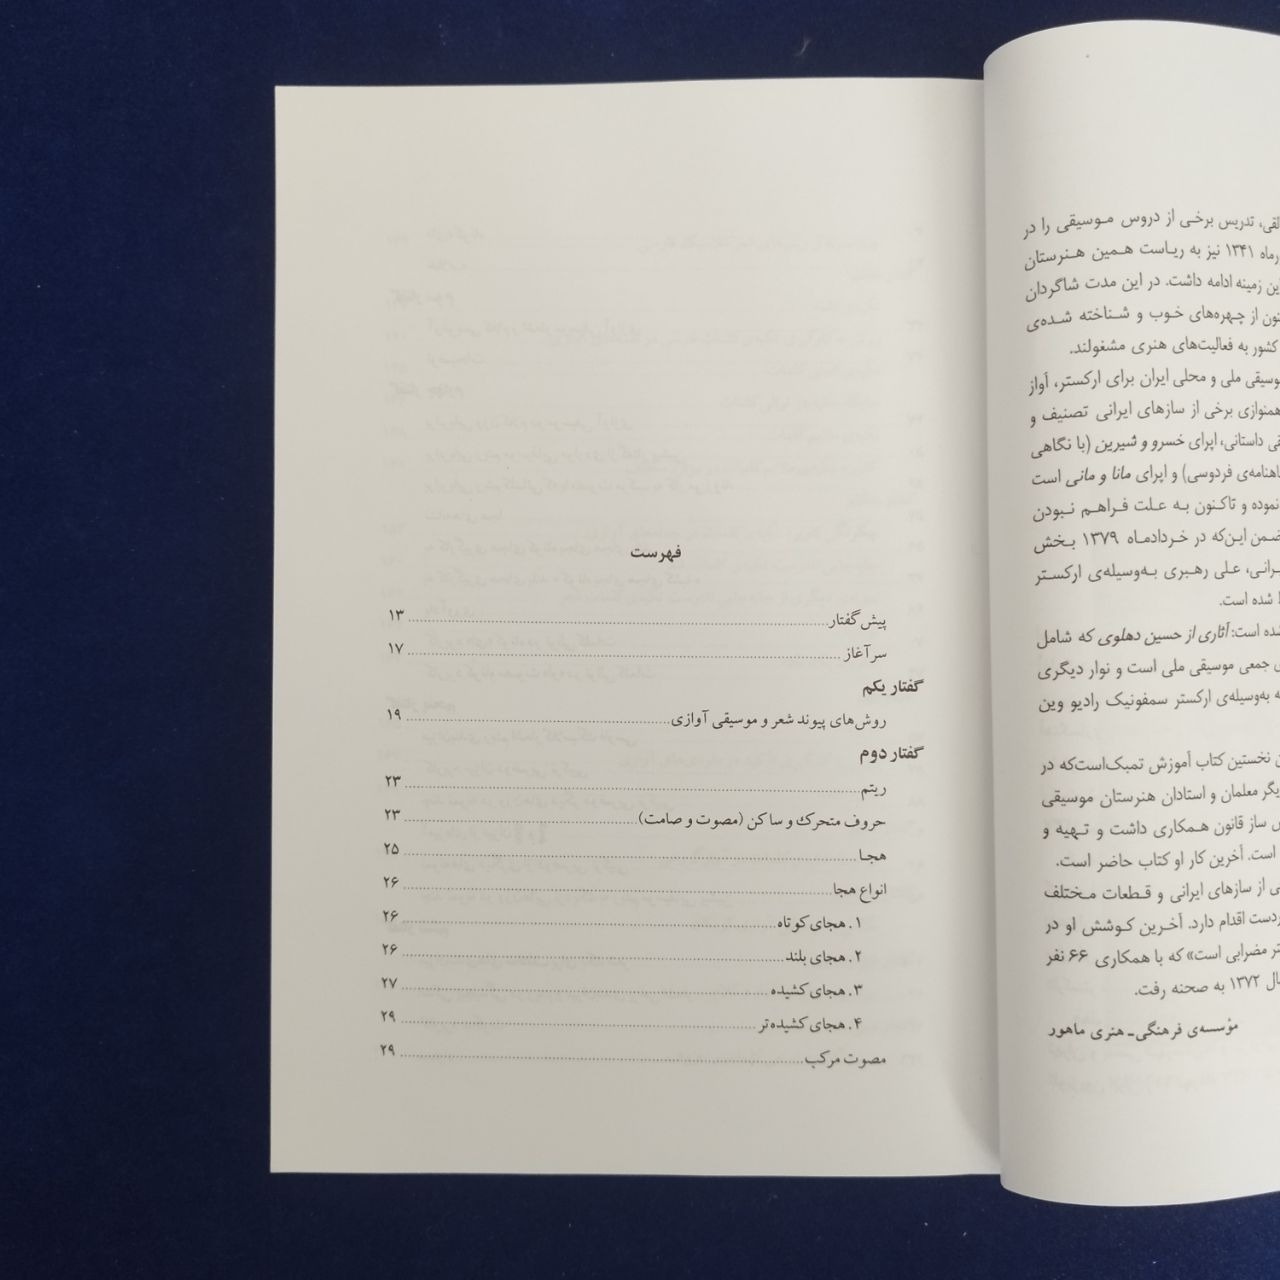 القی، تدریس برخی از دروس موسیقی را در
رماه ۱۳۴۱ نیز به ریاست همین هنرستان
این زمینه ادامه داشت. در این مدت شاگردان
نون از چهره‌های خوب و شناخته شده‌ی
کشور به فعالیت‌های هنری مشغولند.
موسیقی ملی و محلی ایران برای ارکستر، آواز
همنوازی برخی از سازهای ایرانی تصنیف و
قی داستانی، اپرای خسرو و شیرین (با نگاهی
اهنامه‌ی فردوسی) و اپرای مانا و مانی است
نموده و تاکنون به علت فراهم نبودن
ضمن این‌که در خردادماه ۱۳۷۹ بخش
یرانی، علی رهبری به‌وسیله‌ی ارکستر
ط شده است.
شده است: آثاری از حسین دهلوی که شامل
ی جمعی موسیقی ملی است و نوار دیگری
ه به‌وسیله‌ی ارکستر سمفونیک رادیو وین
ن نخستین کتاب آموزش تمبک‌است‌که در
یگر معلمان و استادان هنرستان موسیقی
ش ساز قانون همکاری داشت و تهیه و
است. آخرین کار او کتاب حاضر است.
ی از سازهای ایرانی و قطعات مختلف
ردست اقدام دارد. آخرین کوشش او در
تر مضرابی است» که با همکاری ۶۶ نفر
ال ۱۳۷۲ به صحنه رفت.
مؤسسه‌ی فرهنگی-هنری ماهور
فهرست
پیش‌گفتار ۱۳
سرآغاز ۱۷
گفتار یکم
روش‌های پیوند شعر و موسیقی آوازی ۱۹
گفتار دوم
ریتم ۲۳
حروف متحرک و ساکن (مصوت و صامت) ۲۳
هجا ۲۵
انواع هجا ۲۶
۱. هجای کوتاه ۲۶
۲. هجای بلند ۲۶
۳. هجای کشیده ۲۷
۴. هجای کشیده‌تر ۲۹
مصوت مرکب ۲۹